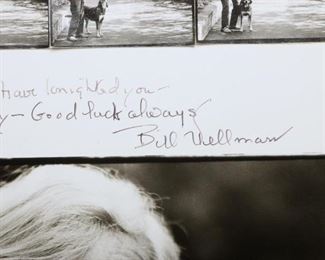 Have knighted you—
y—Good luck always
Bill Wellman